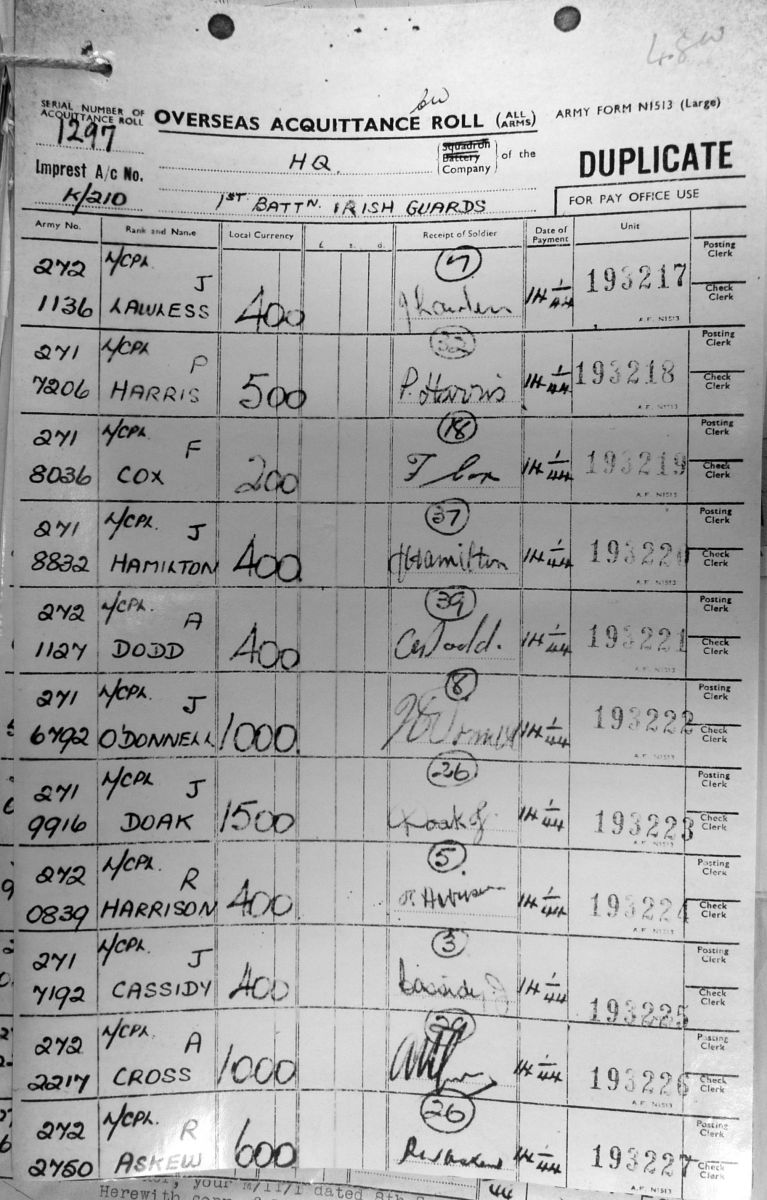 4.8w
SERIAL NUMBER OF ACQUITTANCE ROLL
1297
OVERSEAS ACQUITTANCE ROLL (ALL ARMS)
ARMY FORM N1513 (Large)
HQ
Squadron Battery Company of the
DUPLICATE
Imprest A/c No.
K/210
1ST BATTN. IRISH GUARDS
FOR PAY OFFICE USE
Army No. Rank and Name Local Currency £ s. d. Receipt of Soldier Date of Payment Unit Posting Clerk
272 L/CPL. J 7
1136 LAWLESS 400 14 1/44 193217 Check Clerk
A.F. N1513
271 L/CPL P 32 Posting Clerk
7206 HARRIS 500 P. Harris 14 1/44 193218 Check Clerk
A.F. N1513
271 L/CPL. F 18 Posting Clerk
8036 COX 200 F Cox 14 1/44 193219 Check Clerk
A.F. N1513
271 L/CPL. J 37 Posting Clerk
8832 HAMILTON 400 J Hamilton 14 1/44 193220 Check Clerk
A.F. N1513
272 L/CPL. A 39 Posting Clerk
1127 DODD 400 Dodd. 14 1/44 193221 Check Clerk
A.F. N1513
271 L/CPL. J 8 Posting Clerk
6792 O'DONNELL 1000 14 1/44 193222 Check Clerk
A.F. N1513
271 L/CPL J 26 Posting Clerk
9916 DOAK 1500 Doak J 14 1/44 193223 Check Clerk
A.F. N1513
272 L/CPL. R 5. Posting Clerk
0839 HARRISON 400 R. Harrison 14 1/44 193224 Check Clerk
A.F. N1513
271 L/CPL. J 3 Posting Clerk
7192 CASSIDY 400 Cassidy J 14 1/44 193225 Check Clerk
272 L/CPL. A 29 Posting Clerk
2217 CROSS 1000 14 1/44 193226 Check Clerk
A.F. N1513
272 L/CPL. R 26 Posting Clerk
2750 ASKEW 600 14 1/44 193227 Check Clerk
your M/11/1 dated 8th
Herewith
44